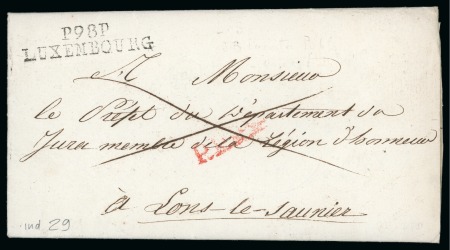 P98P
LUXEMBOURG
A Monsieur
le Préfet du Département du
Jura membre de la Légion d'honneur
à Lons-le-Saunier
ind 29